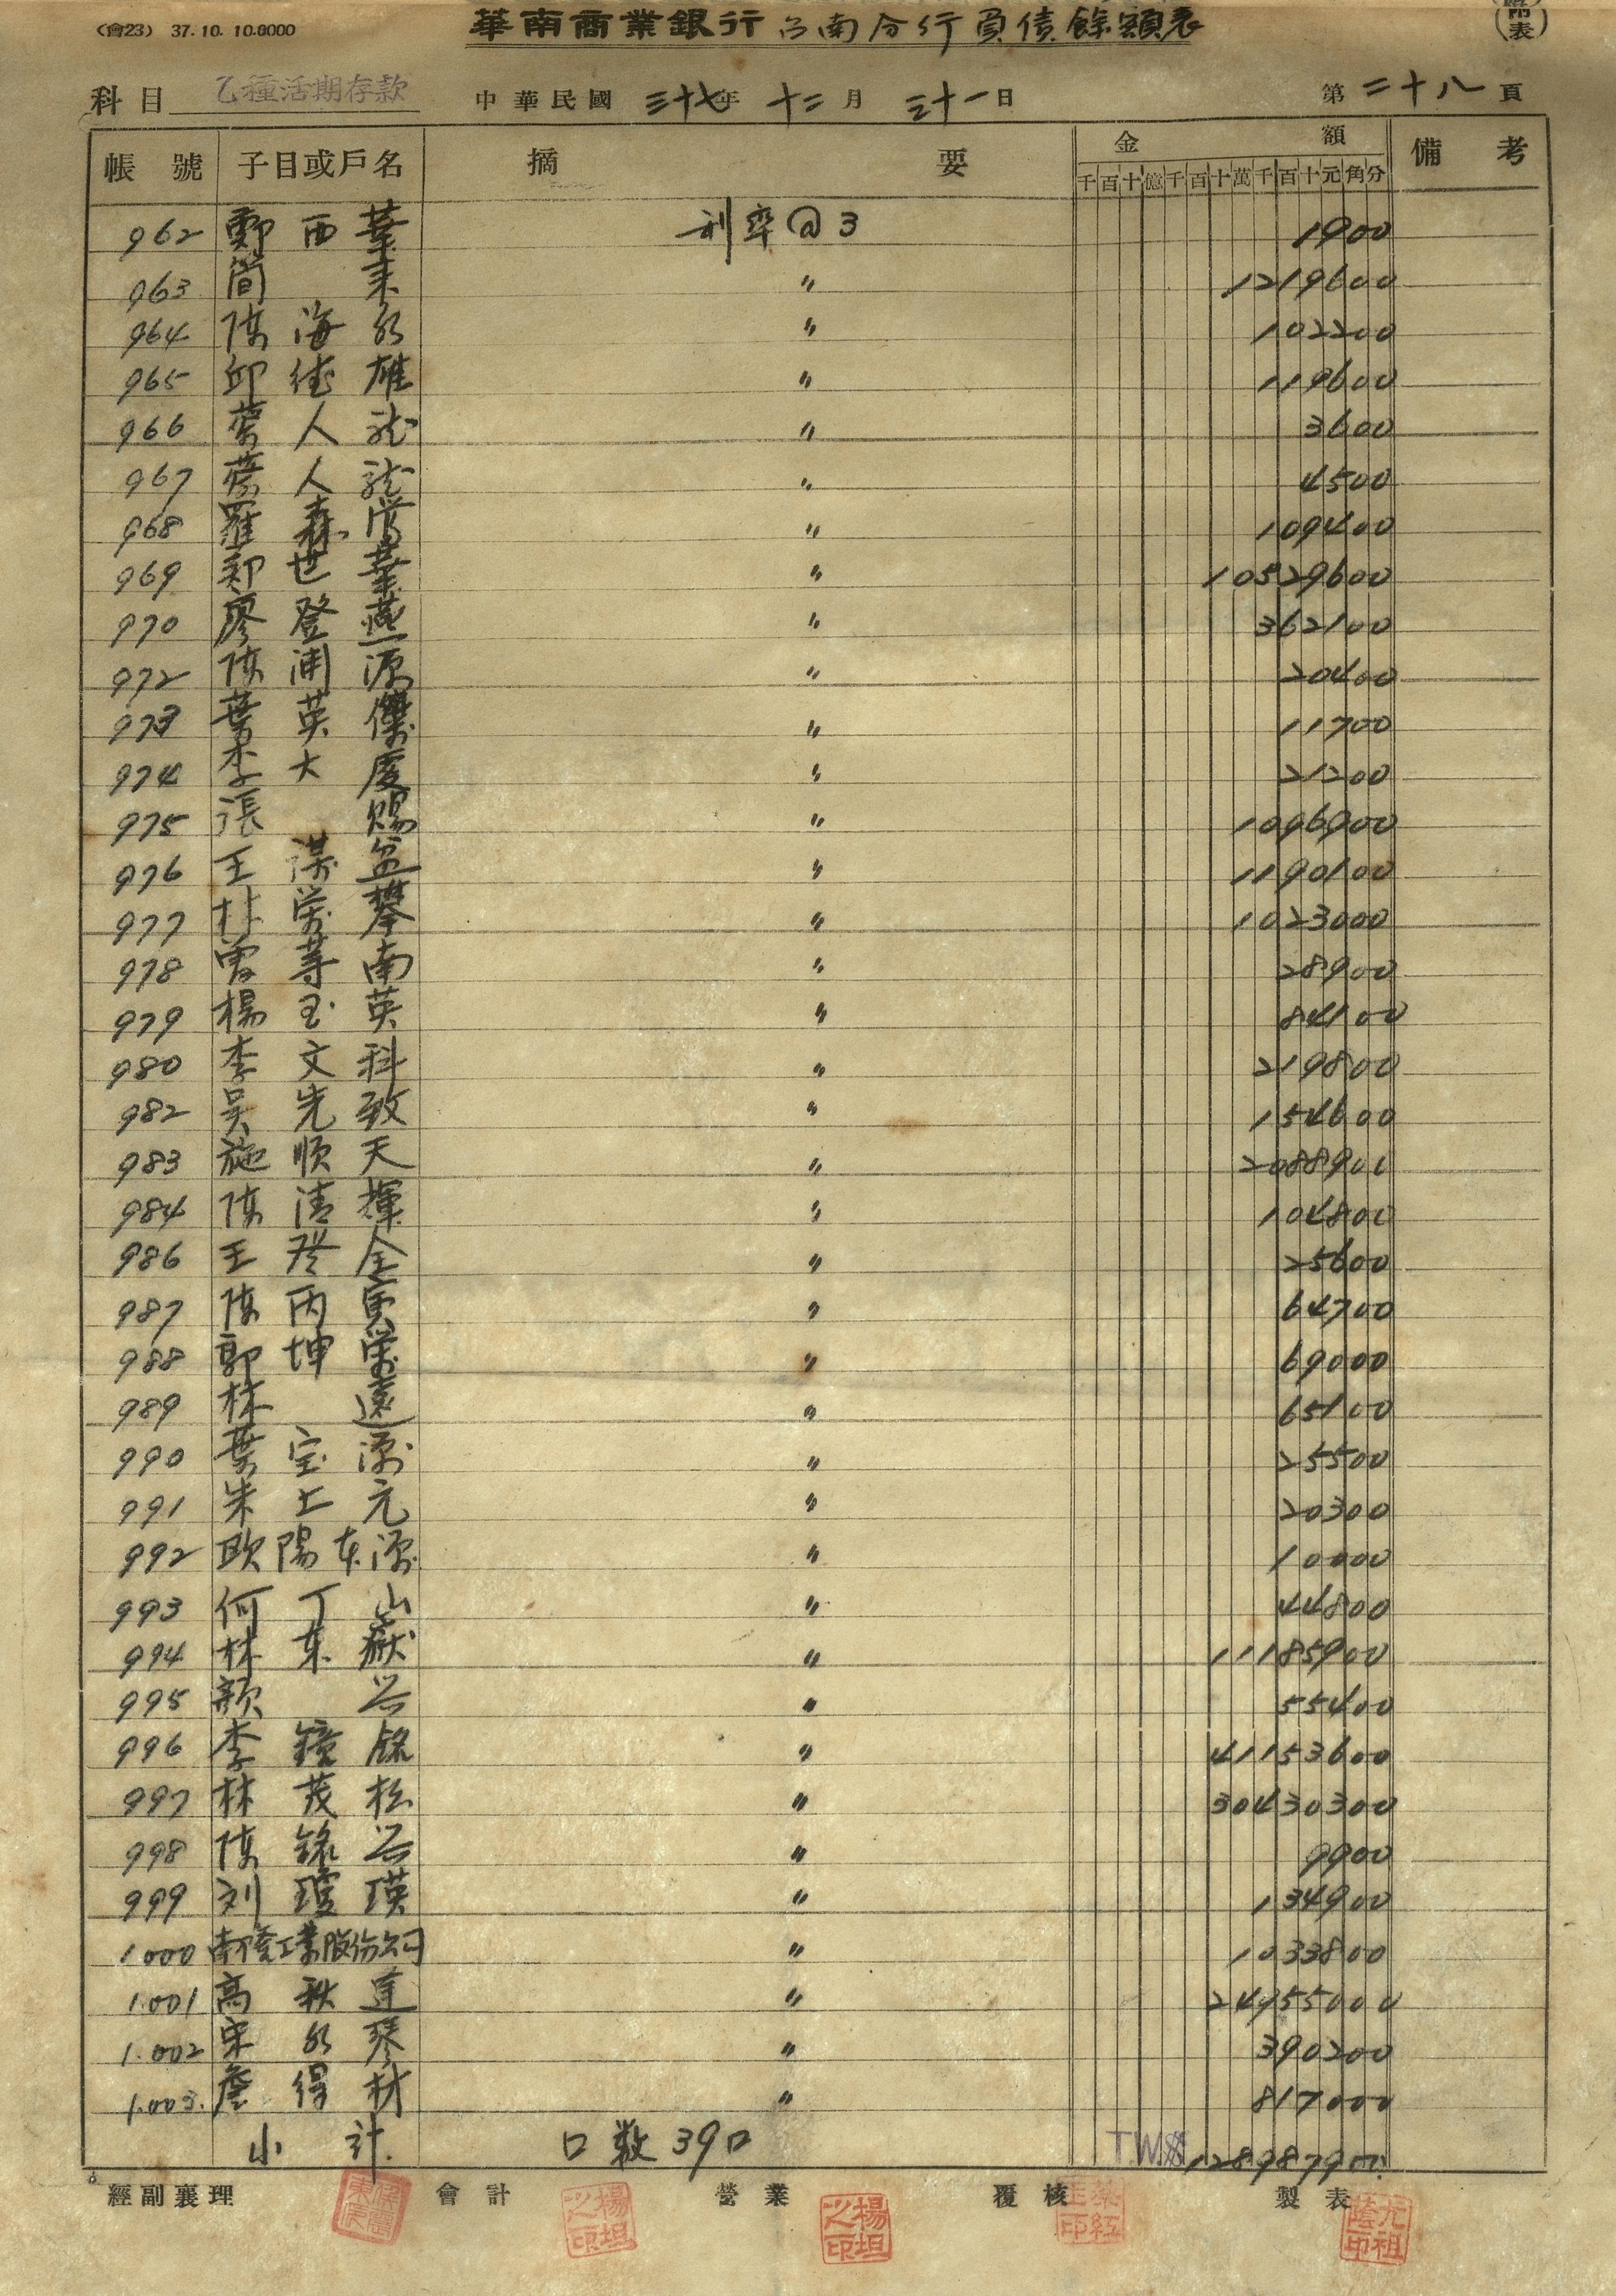 (會23) 37.10. 10.0000
華南商業銀行台南分行負債餘額表
(附表)
科目 乙種活期存款 中華民國 三十七年 十二月 三十一日 第二十八頁
帳號 子目或戶名 摘要 金額 備考
千百十億千百十萬千百十元角分
962 鄭西葉 利率@3 1900
963 簡來 〃 1219600
964 陳海水 〃 102200
965 邱德雄 〃 119600
966 蔡人龍 〃 3600
967 蔡人龍 〃 4500
968 羅森 〃 109400
969 鄭世業 〃 10529600
970 廖登燕 〃 362100
972 陳浦源 〃 20400
973 葉英傑 〃 11700
974 李大慶 〃 21200
975 張賜 〃 1096900
976 王盆 〃 1190100
977 攀 〃 1023000
978 曾等南 〃 28900
979 楊玉英 〃 84100
980 李文科 〃 219800
982 吳先致 〃 154600
983 施順天 〃 2088900
984 陳清輝 〃 104800
986 王登全 〃 25600
987 陳丙寅 〃 64700
988 郭坤榮 〃 69000
989 林遠 〃 65100
990 葉宝源 〃 25500
991 朱上元 〃 20300
992 歐陽東源 〃 10000
993 何丁山 〃 44800
994 林東嶽 〃 11185900
995 顏兴 〃 55400
996 李鏡銘 〃 41153600
997 林茂松 〃 30430300
998 陳銘兴 〃 9900
999 刘瓊瑛 〃 134900
1.000 南隆工業股份公司 〃 1033800
1.001 高秋達 〃 24955000
1.002 宋水琴 〃 390200
1.003. 詹得材 〃 817000
小計. 口數39口 TW$ 128987900
經副襄理 會計 營業 覆核 製表
楊坦之印
楊坦之印